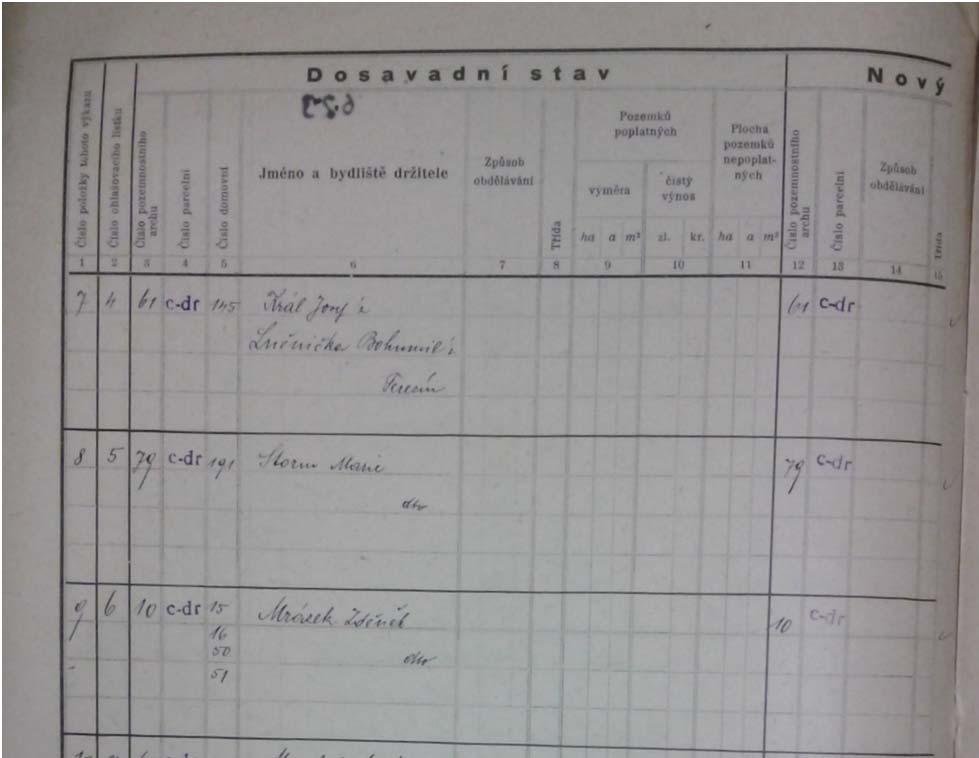 Dosavadní stav
Nový
Číslo položky tohoto výkazu
Číslo ohlašovacího lístku
Číslo pozemnostního archu
Číslo parcelní
Číslo domovní
Jméno a bydliště držitele
Způsob obdělávání
Třída
Pozemků poplatných
výměra
čistý výnos
ha a m²
zl. kr.
Plocha pozemků nepoplat-
ných
ha a m²
Číslo pozemnostního archu
Číslo parcelní
Způsob obdělávání
Třída
1 2 3 4 5 6 7 8 9 10 11 12 13 14 15
7 4 61 c-dr 145 Král Josef 61 c-dr
Lučnička Bohumil
Terezín
8 5 79 c-dr 191 Storm Marie 79 c-dr
dto
9 6 10 c-dr 15 Mrázek Zdeněk 10 c-dr
16
50
dto
51